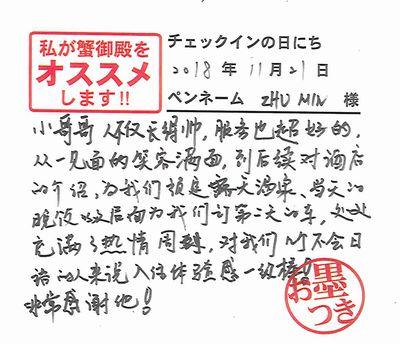 私が蟹御殿を
オススメ
します!!
チェックインの日にち
2018 年 11月21日
ペンネーム ZHU MIN 様
小哥哥人不仅长得帅，服务也超好的，
从一见面的笑容满面，到后续对酒店
的介绍，为我们提露天温泉、当天的
晚饭以及后面为我们订第二天的车，处处
充满了热情周到，对我们这个不会日
语的人来说入住体验感一级棒！
非常感谢他！
お墨
つき